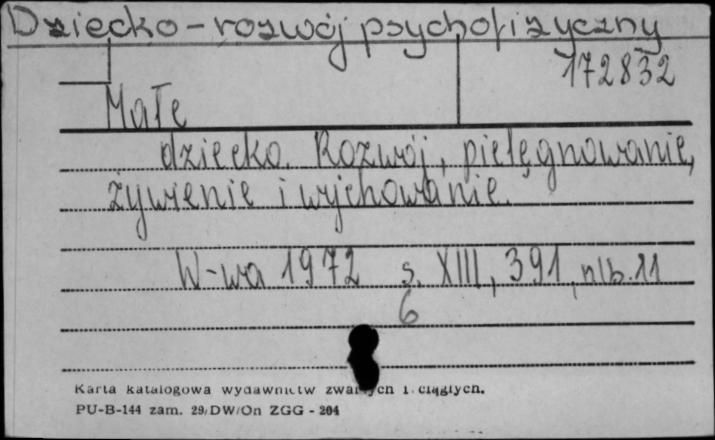 Dziecko - rozwój psychofizyczny
172832
Małe
dziecko. Rozwój, pielęgnowanie,
żywienie i wychowanie.
W-wa 1972 s. XIII, 391, nlb. 11
6
Karta katalogowa wydawnictw zwartych i ciągłych.
PU-B-144 zam. 29/DW/On ZGG - 204